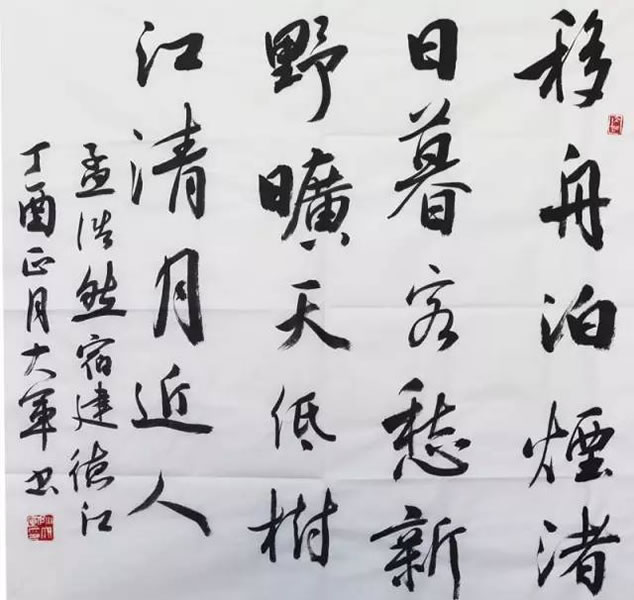 移舟泊煙渚
日暮客愁新
野曠天低樹
江清月近人
孟浩然宿建德江
丁酉正月大軍书